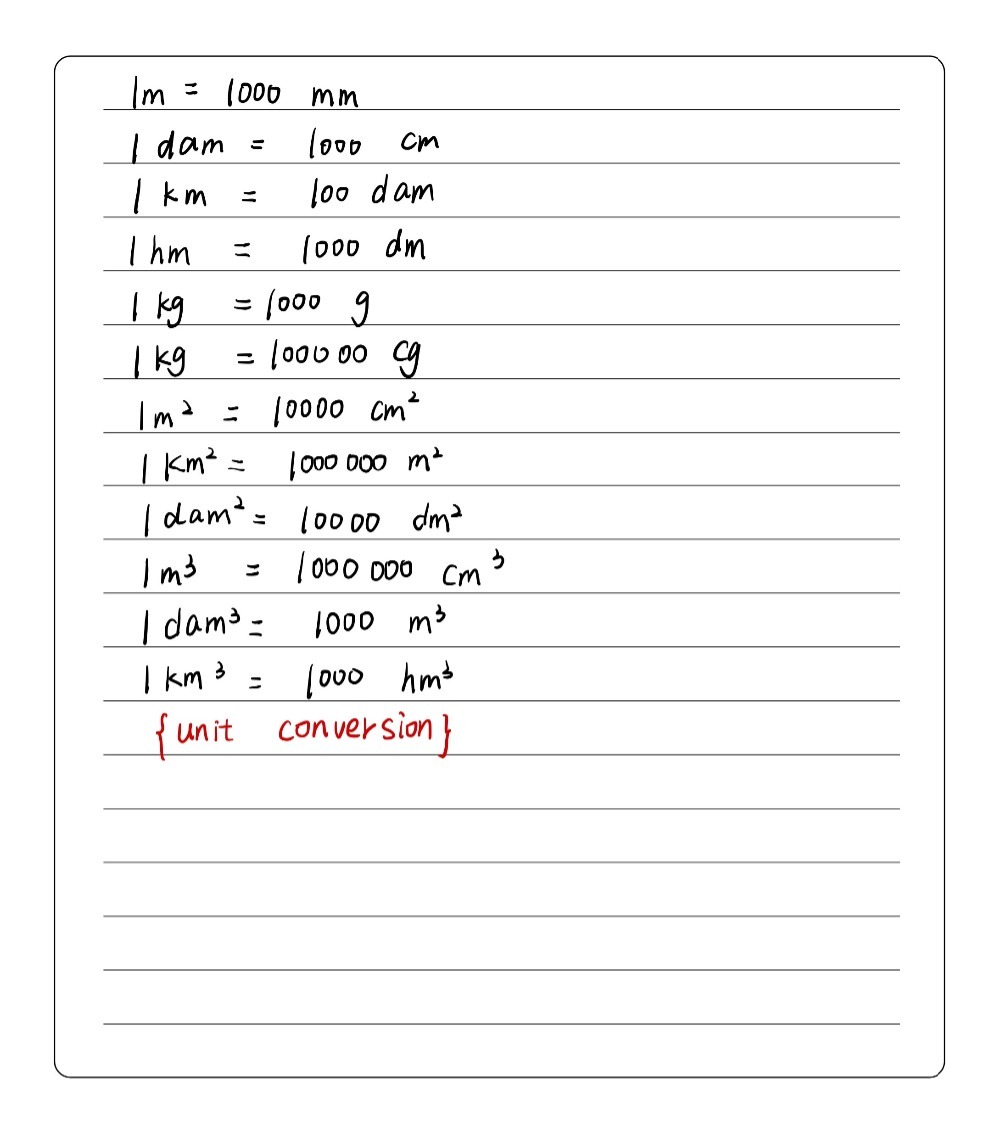 1m = 1000 mm
1 dam = 1000 cm
1 km = 100 dam
1 hm = 1000 dm
1 kg = 1000 g
1 kg = 100000 cg
1m² = 10000 cm²
1 km² = 1000 000 m²
1 dam² = 10000 dm²
1m³ = 1000 000 cm³
1 dam³ = 1000 m³
1 km³ = 1000 hm³
{unit conversion}